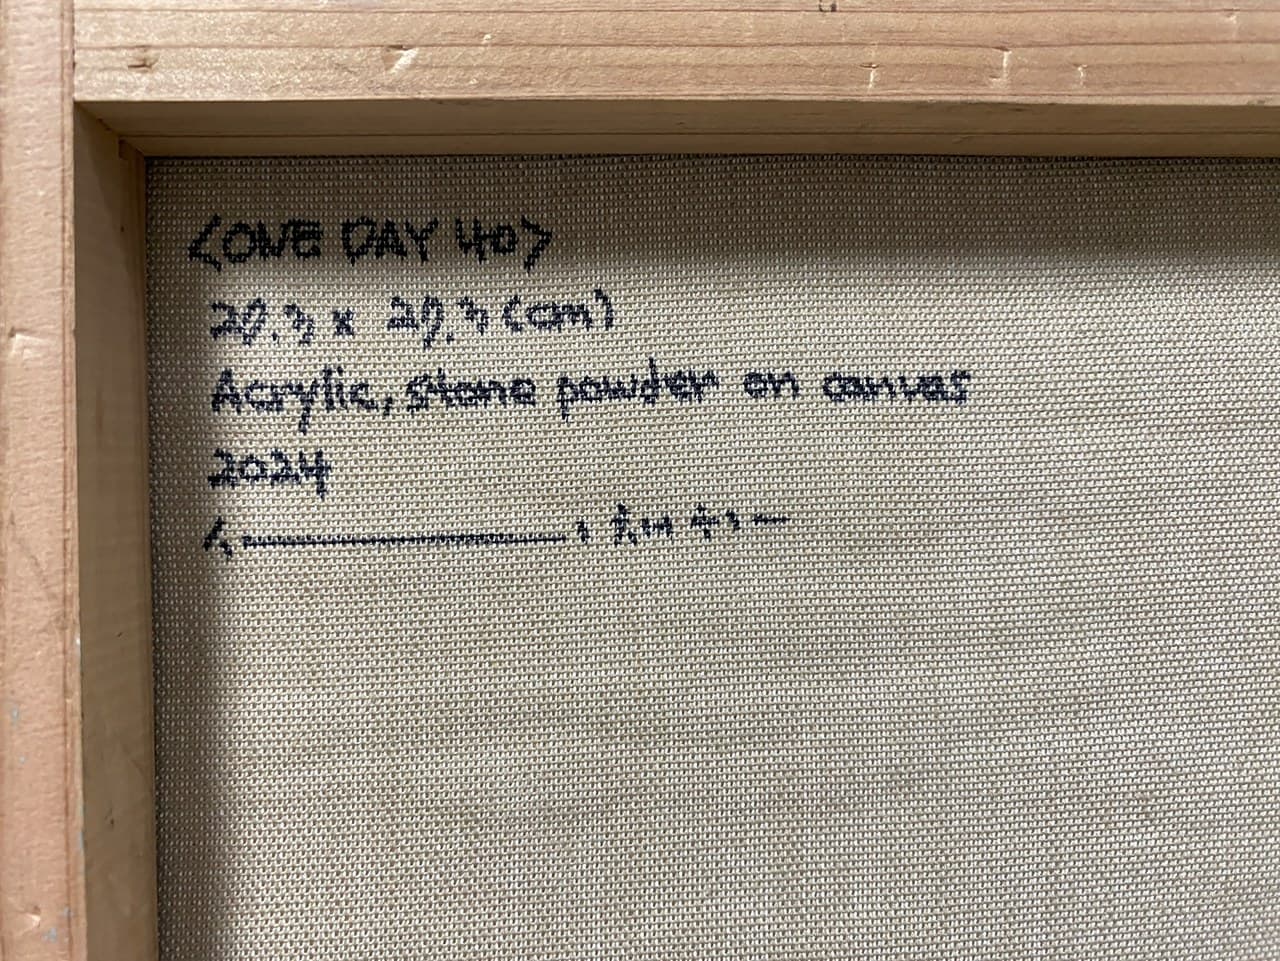 <ONE DAY 40>
27.3 x 27.3 (cm)
Acrylic, stone powder on canvas
2024